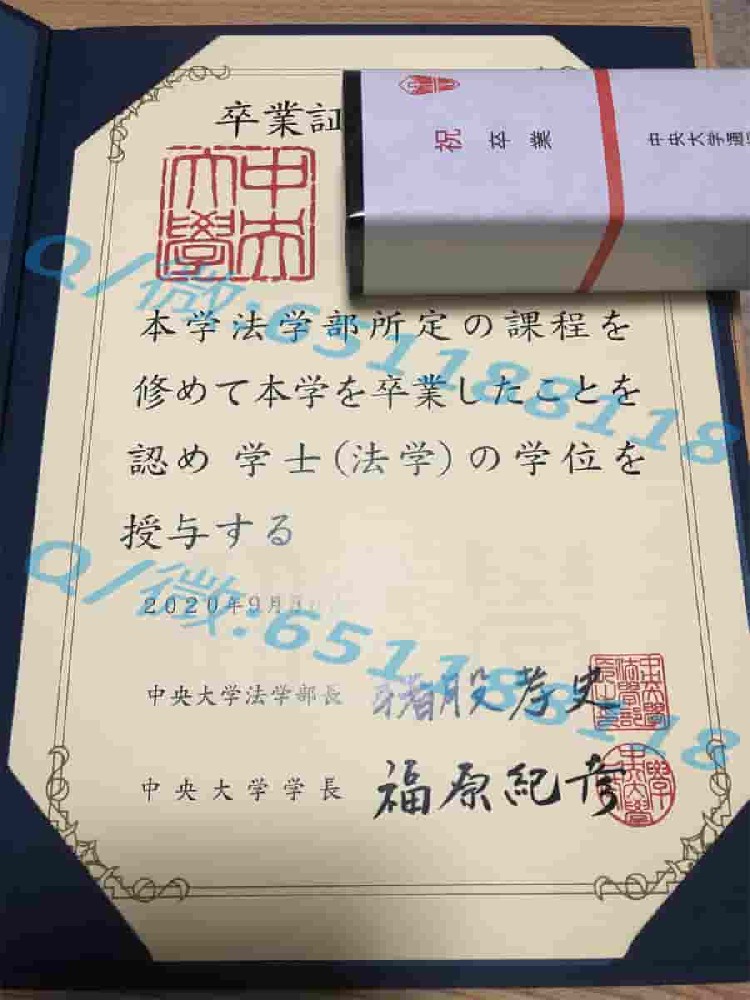 卒業証
中央
大學
祝 卒業
中央大学通
Q/微:651188118
本学法学部所定の課程を
修めて本学を卒業したことを
認め 学士(法学)の学位を
授与する
Q/微:651188118
2020年9月
中央大学法学部長 猪股孝史
中央大学学長 福原紀彦